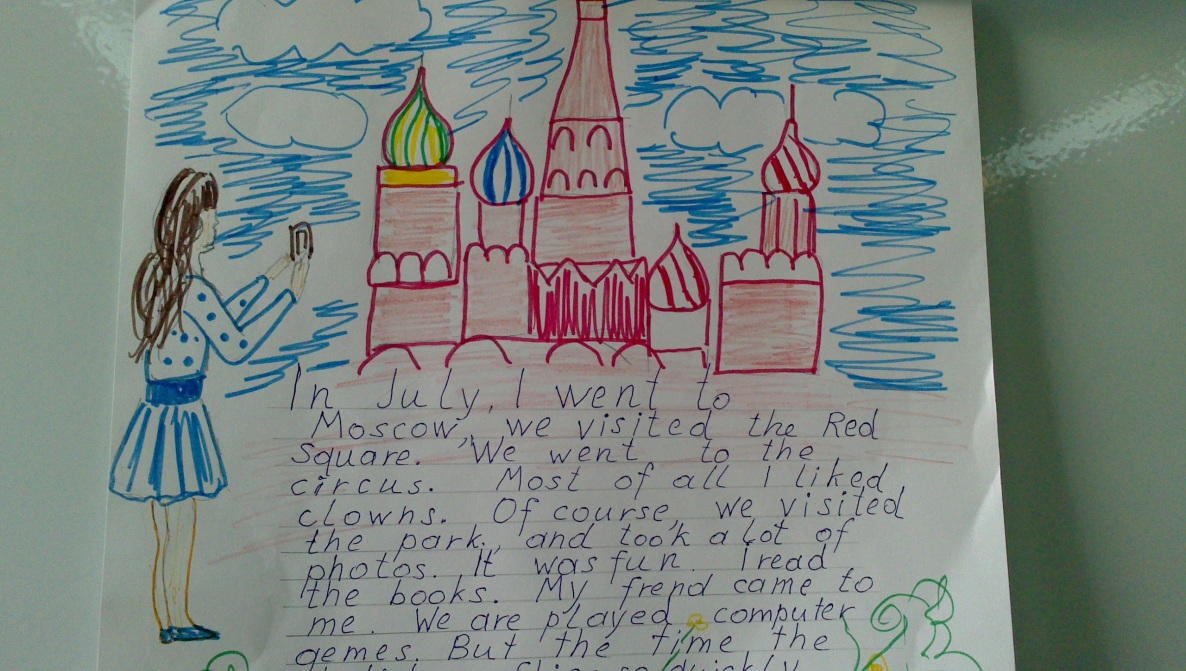 In July, I went to
Moscow, we visited the Red
Square. We went to the
circus. Most of all I liked
clowns. Of course, we visited
the park, and took a lot of
photos. It was fun. I read
the books. My frend came to
me. We are played computer
gemes. But the time the
so quickly